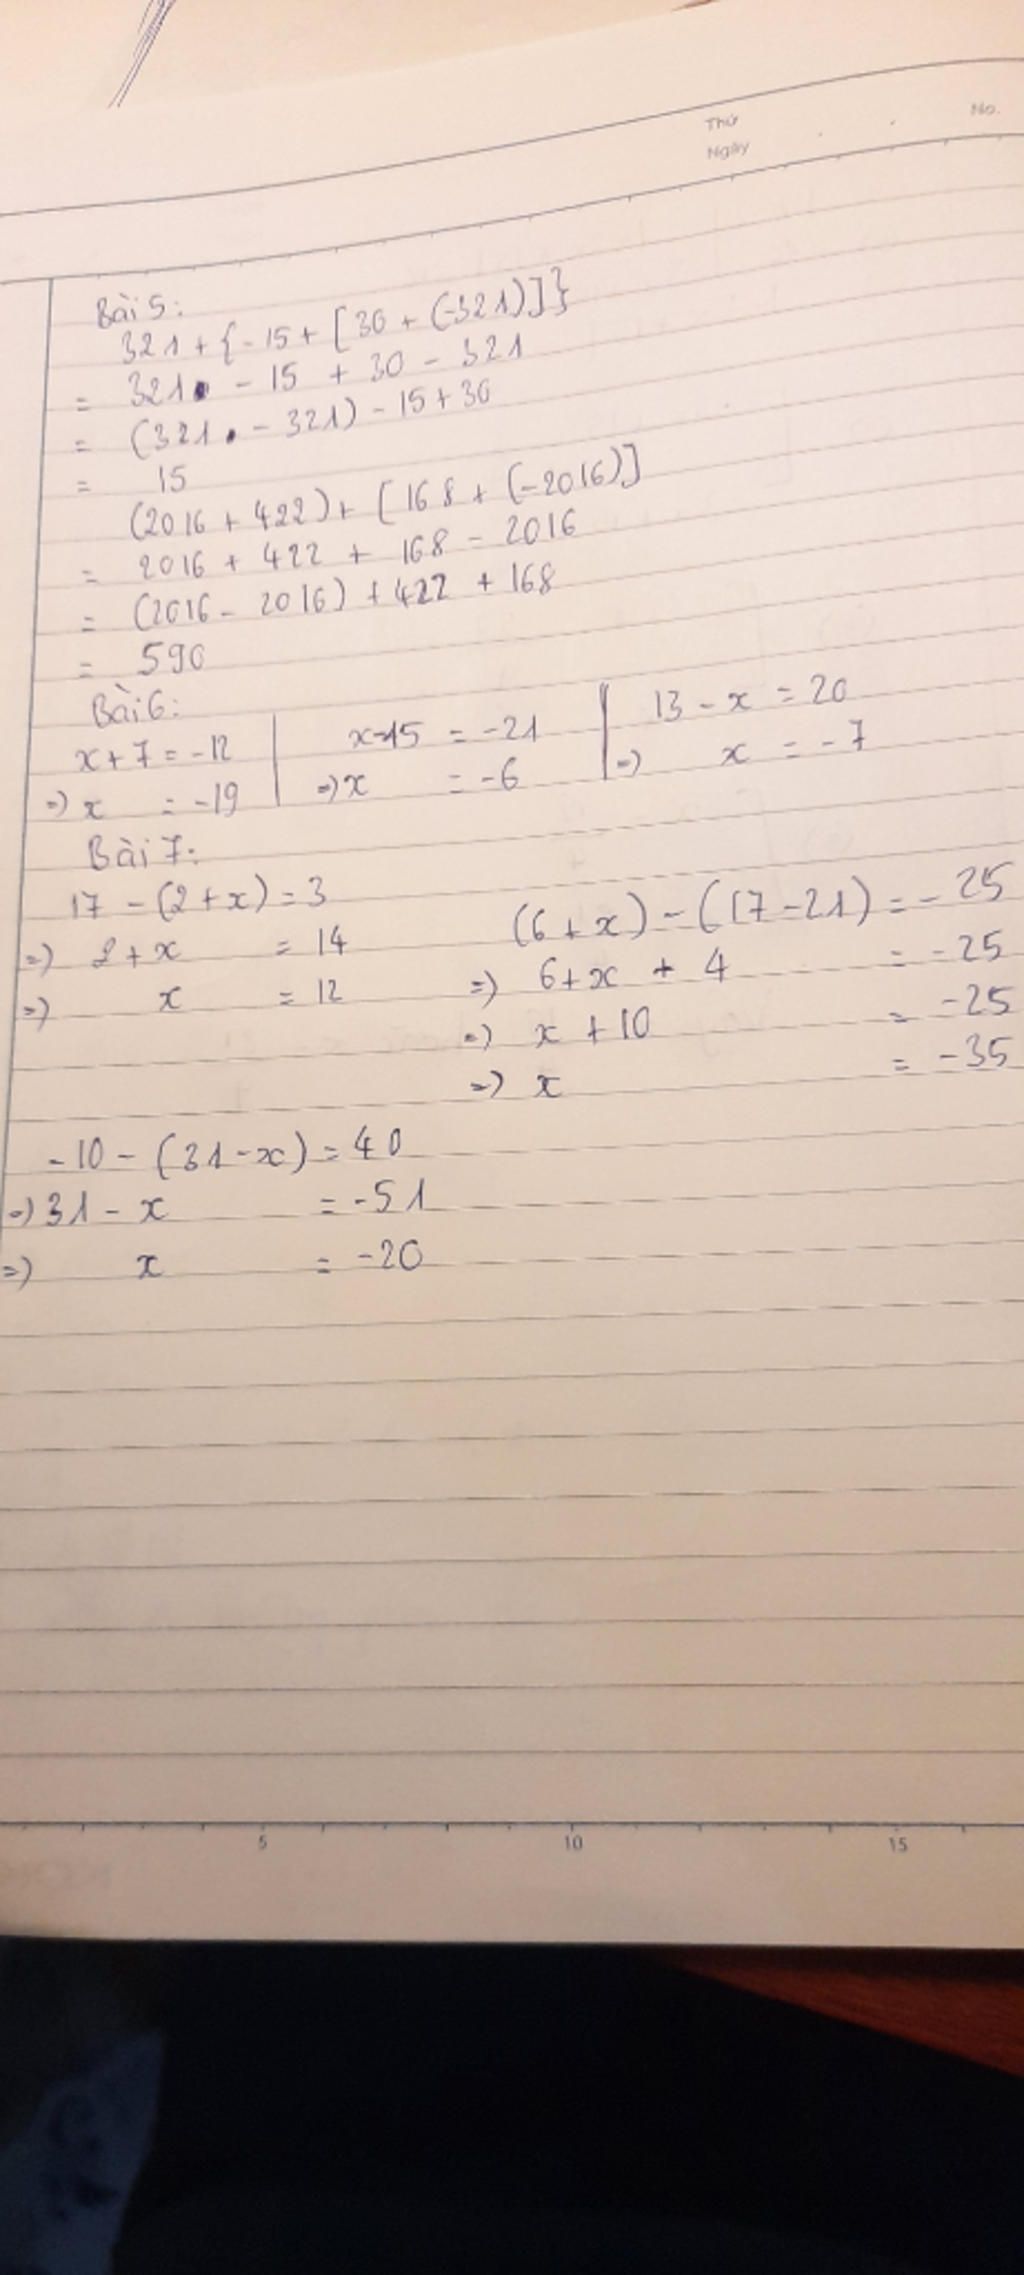 Thứ
Ngày
No.
Bài 5:
321 + {-15 + [30 + (-321)]}
= 321 - 15 + 30 - 321
= (321 - 321) - 15 + 30
= 15
(2016 + 422) + [168 + (-2016)]
= 2016 + 422 + 168 - 2016
= (2016 - 2016) + 422 + 168
= 590
Bài 6:
x + 7 = -12
=> x = -19
x - 15 = -21
=> x = -6
13 - x = 20
=> x = -7
Bài 7:
17 - (2 + x) = 3
=> 2 + x = 14
=> x = 12
(6 + x) - (17 - 21) = -25
=> 6 + x + 4 = -25
=> x + 10 = -25
=> x = -35
-10 - (31 - x) = 40
=> 31 - x = -51
=> x = -20
5 10 15